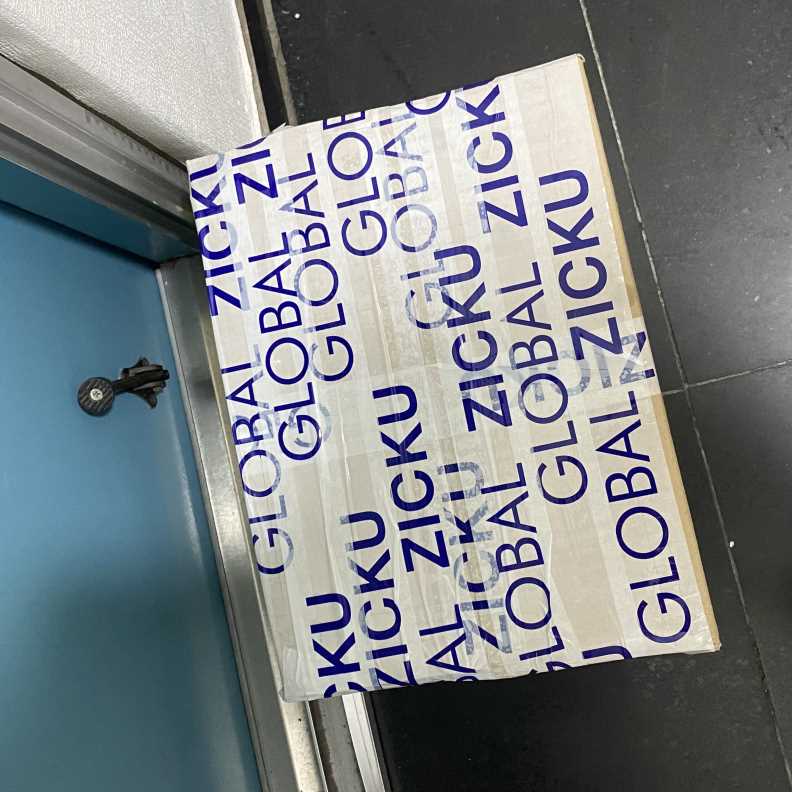 GLOBAL ZICKU
GLOBAL ZICKU
GLOBAL
GLOBAL
GLOBAL
ZICKU
ZICKU
ZICKU
ZICKU
GLOBAL ZICKU
ZICKU
GLOBAL ZICKU
GLOBAL
GLOBAL